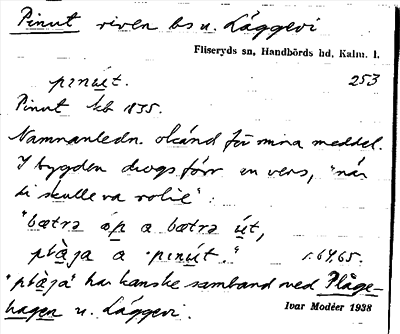 Pinut riven bs u. Läggevi
Fliseryds sn, Handbörds hd, Kalm. l.
pɪnút. 253
Pinut kb 1835.
Namnanledn. okänd för mina meddel.
I bygden drogs förr en vers, "när
di skulle va rolit":
"bætrə óp a bætrə út,
plàja a pɪnút." 1.6465.
"plàja" har kanske samband med Plåge-
hagen u. Läggevi.
Ivar Modéer 1938